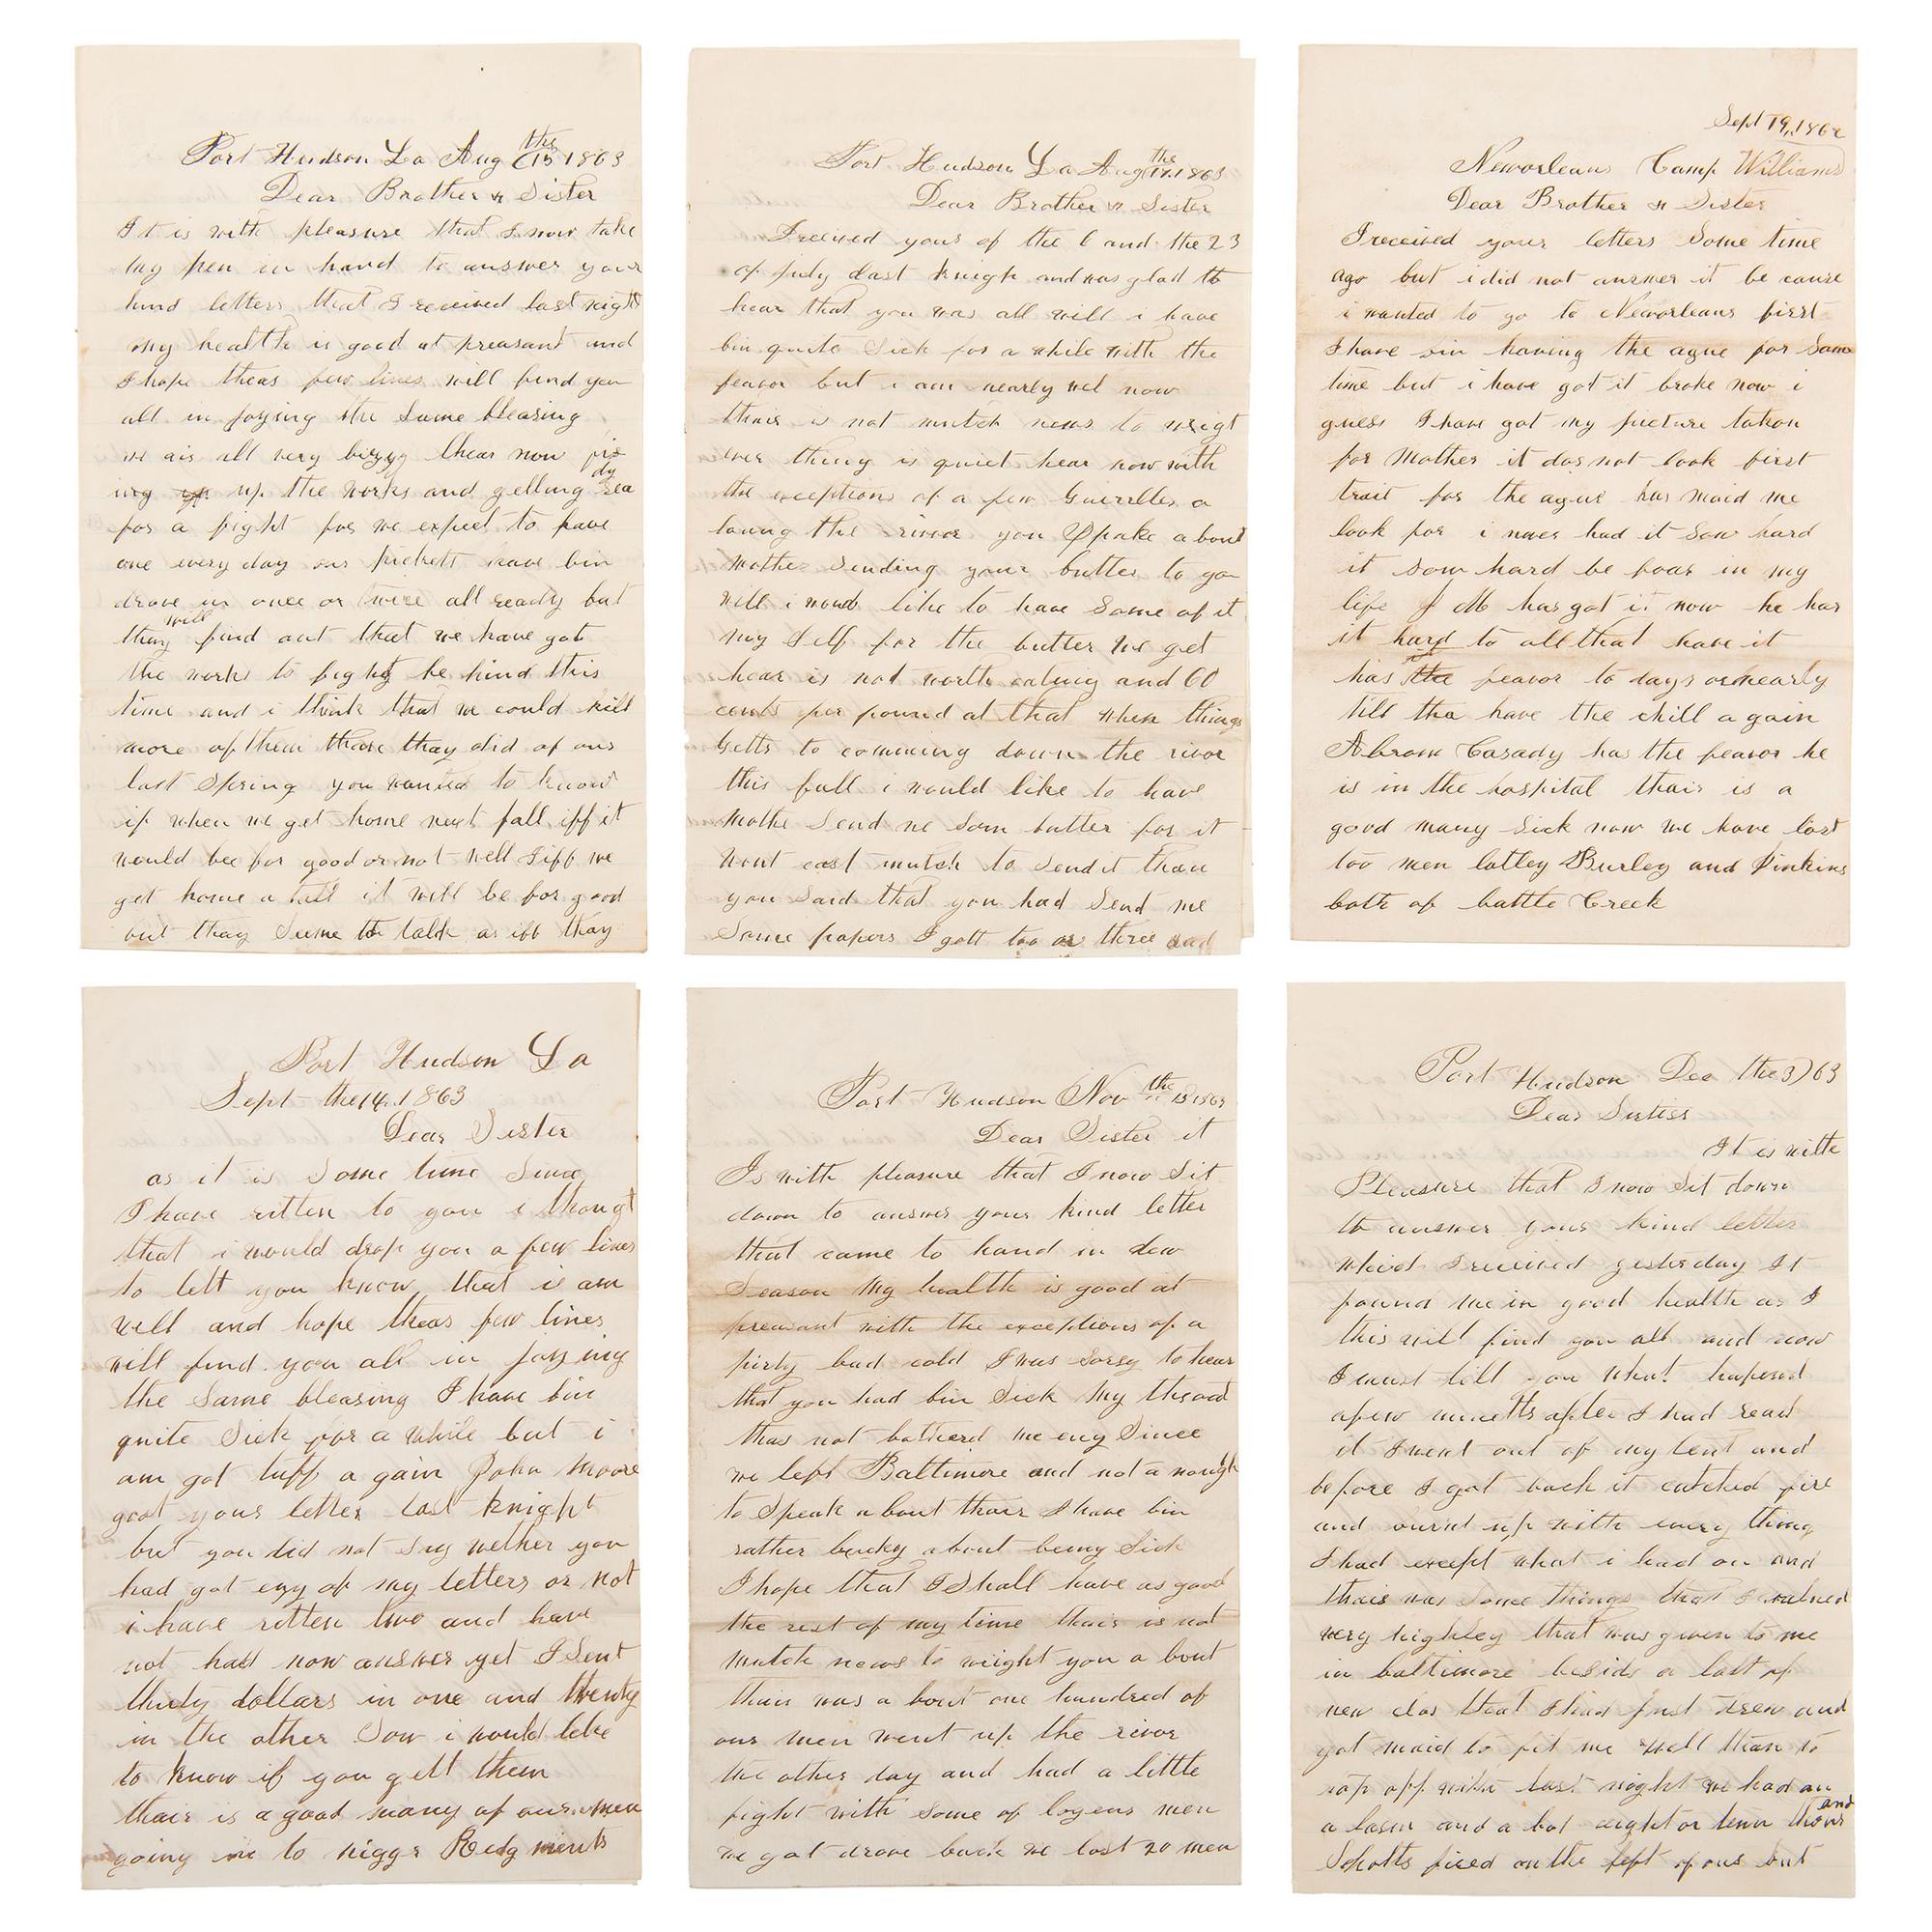 Port Hudson La Aug the 15 1863
Dear Brother & Sister
It is with pleasure that I now take
my pen in hand to answer your
kind letters that I received last night
my health is good at preasant and
I hope theas few lines will find you
all in joying the same bleasing
we air all very bizzy thear now fix
ing up the works and gelling rea
dy
for a fight for we expect to have
one every day our picketts have bin
drove in once or twice all ready but
thay will find out that we have got
the works to fight be hind this
time and i think that we could kill
more of them thare thay did of ous
last spring you wanted to know
if when we get home next fall iff it
would bee for good or not well I iff we
get home a tall it will be for good
but thay seeme to talk as iff thay
Port Hudson La Aug the 17. 1863
Dear Brother & Sister
I received yours of the 6 and the 23
of july last knigh and was glad to
hear that you was all will i have
bin quite Sick for a while with the
feavor but i am nearly wel now
thair is not mutch news to wrigt
ever thing is quiet hear now with
the exceptions of a few Guerrlles a
loung the rivor you Spake about
mother Sending your butter to you
will i would like to have Some of it
my Self for the butter we get
hear is not worth and 60
cents per pound at that when things
getts to comming down the rivor
this fall i would like to have
mothe Send me Som butter for it
wont cost mutch to Send it than
you Said that you had Send me
Some papers I gott too or three and
Sept 19, 1862
Neworleans Camp Williams
Dear Brother & Sister
I received your letters Some time
ago but i did not answer it be cause
i wanted to go to Neworleans first
I have bin having the ague for Some
time but i have got it broke now i
guess I have got my picture taken
for Mother it dos not look first
trait for the ague has maid me
look for i never had it Sow hard
it Sow hard be foar in my
life J M has got it now he has
it hard to all that have it
has the feavor to days or nearly
till tha have the chill a gain
Abram Casady has the feavor he
is in the hospital thair is a
good many Sick now we have lost
too men latley Burley and Pinkins
both of battle Creek
Port Hudson La
Sept the 14. 1863
Dear Sister
as it is Some time Since
I have ritten to you i thougt
that i would drop you a few lines
to lett you know that i am
well and hope theas few lines
will find you all in joying
the Same bleasing I have bin
quite Sick for a while but i
am got tuff a gain John Moore
goot your letter last knight
but you did not Say wether you
had got eny of my letters or not
i have ritten two and have
not had now answer yet I Sent
thirty dollars in one and twenty
in the other Sow i would like
to know if you gett them
thair is a good many of our men
going in to nigge Redgments
Port Hudson Nov the 13 1863
Dear Sister it
Is with pleasure that I now Sit
down to answer your kind letter
that came to hand in dew
Season My health is good at
preasant with the exceptions of a
pirty bad cold I was Sorry to hear
that you had bin Sick My throad
thas not bothierd me eny Since
we left Baltimore and not a nough
to Speak about thair I have bin
rather lucky about being Sick
I hope that I Shall have as good
the rest of my time thair is not
mutch news to wright you a bout
thair was a bout one hundred of
our men went up the rivor
the other day and had a little
fight with some of logens men
we got drove back we lost 20 men
Port Hudson Dec the 3) 63
Dear Sistier
It is with
Pleasure that I now Sit down
to answer your kind letter
which I received yesterday It
found me in good health as I
this will find you all and now
I must tell you what hapened
afew minetts after I had read
it I went out of my tent and
before I got back it catched fire
and burnt up with every thing
I had except what i had on and
thair was some things that I valued
very highley that was given to me
in baltimore beside a lott of
new clos that I had just drew and
got maid to fit me well than to
top off with last night we had an
a larm and a bot eight or tenn thous
and
Schotts fired on the left of ous but